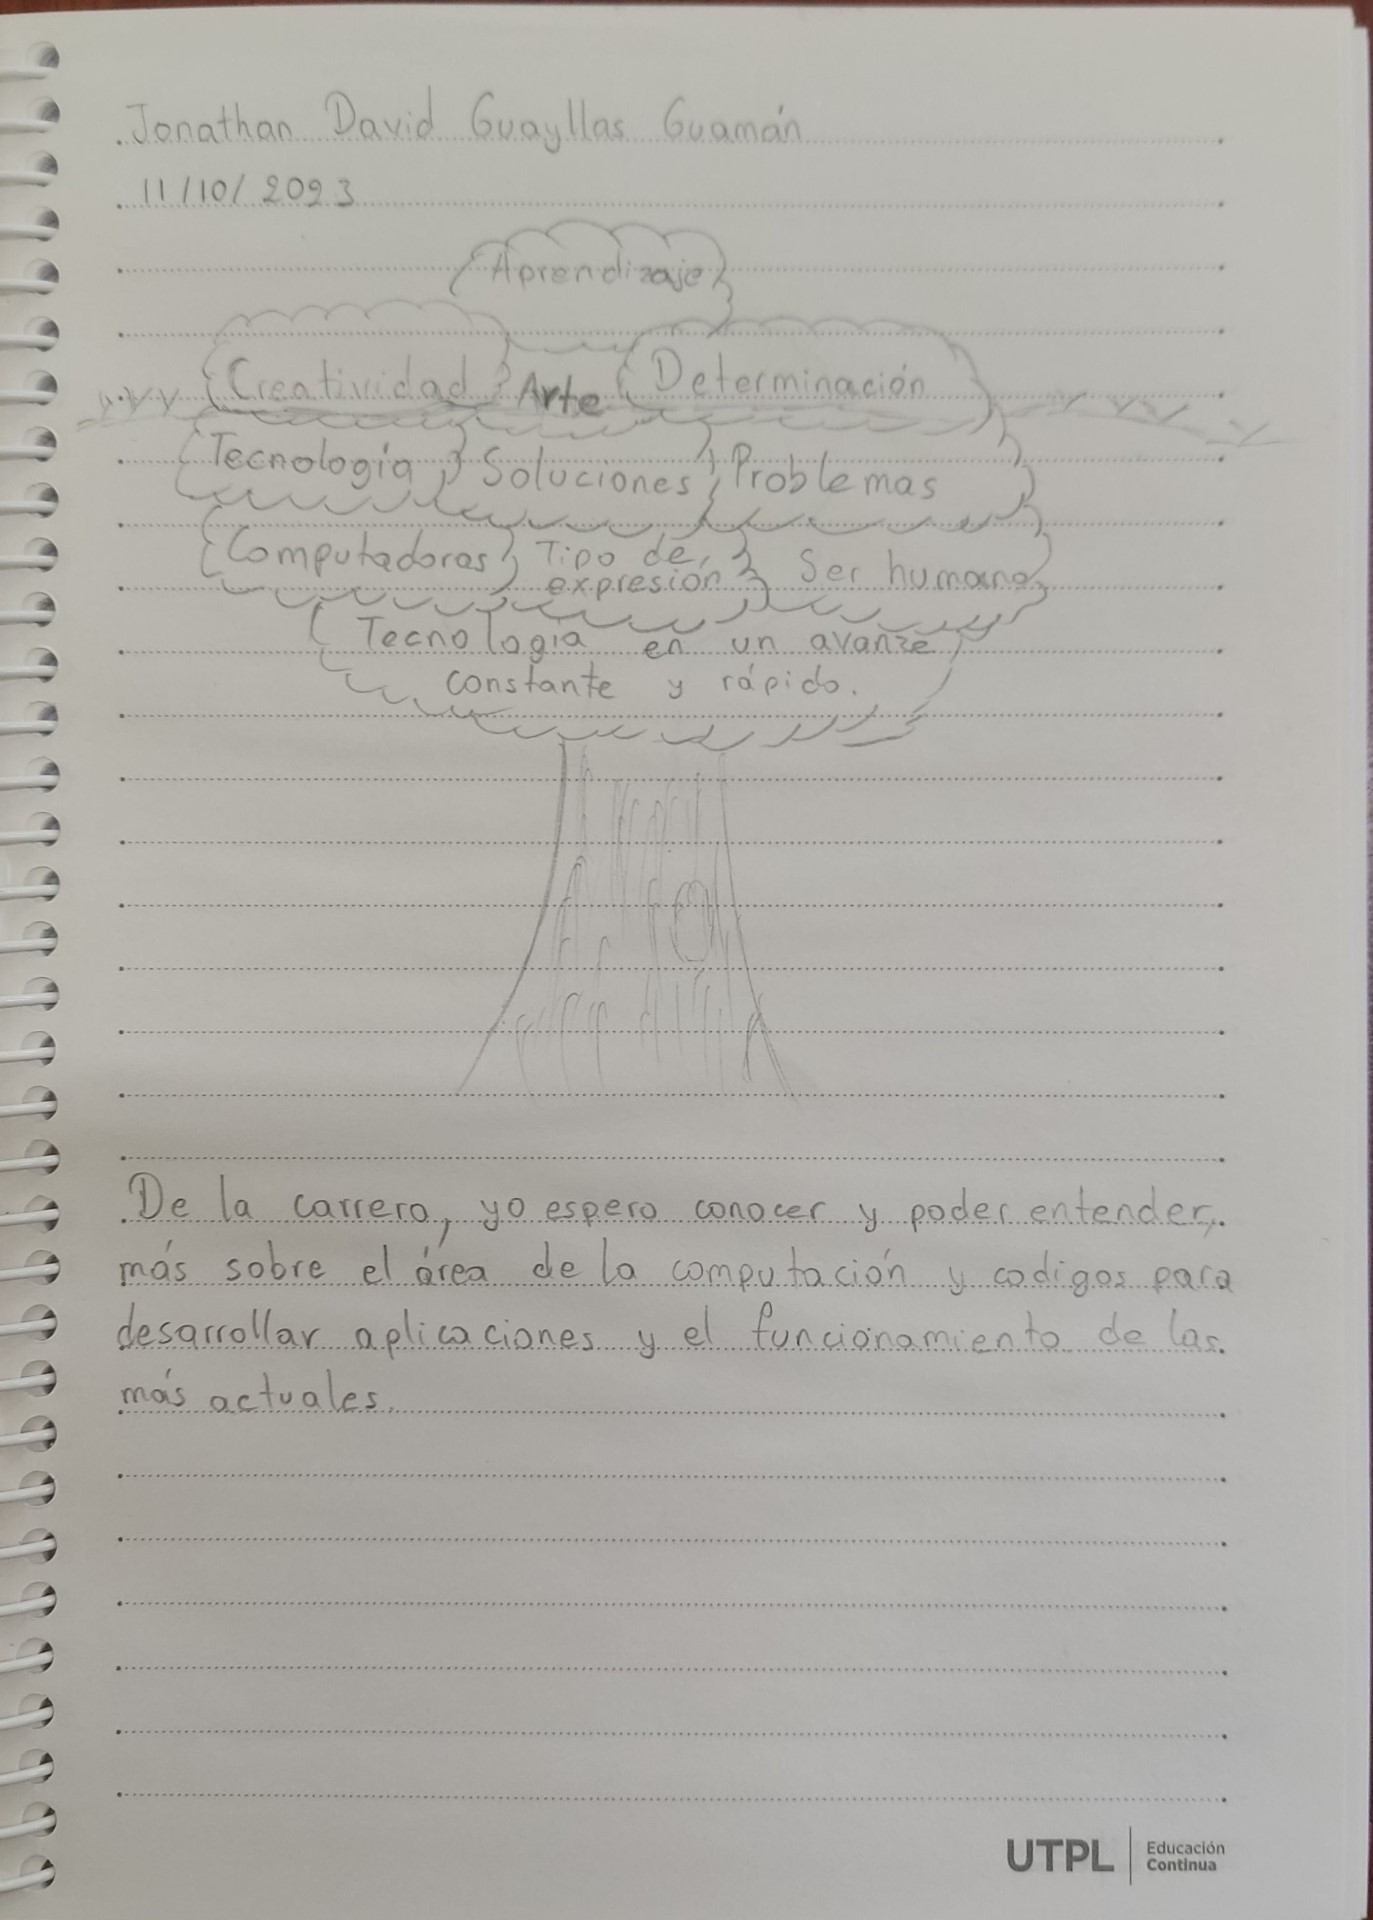 Jonathan David Guayllas Guamán
11/10/2023
Aprendizaje
Creatividad Arte Determinación
Tecnología Soluciones Problemas
Computadoras Tipo de expresión Ser humano
Tecnología en un avance
constante y rápido.
De la carrera, yo espero conocer y poder entender,
más sobre el área de la computación y codigos para
desarrollar aplicaciones y el funcionamiento de las
más actuales.
UTPL Educación
Continua